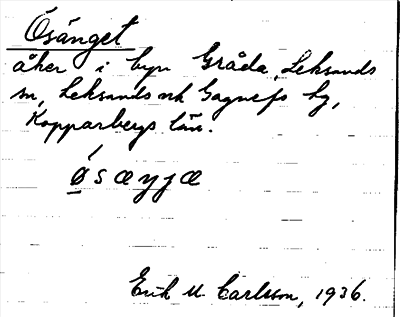 Ösänget
åker i byn Gråda, Leksands
sn, Leksands och Gagnefs hg,
Kopparbergs län.
Erik M. Carlsson, 1936.